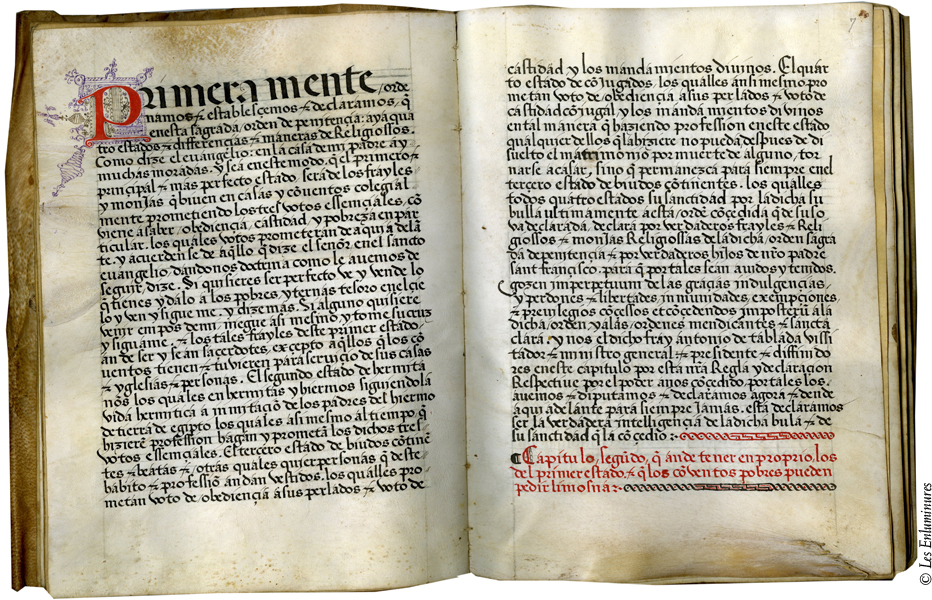 Primeramente /orde
namos & establesçemos & declaramos, q̃
enesta sagrada /orden de penitençia: aya qua
tro estados & differençias & maneras de Religiossos.
Como dize el euangelio: en la casa de mi padre ay
muchas moradas. Y sea en este modo. q̃ el primero &
prinçipal & mas perfecto estado sera de los frayles
y monjas q̃ biuen en casas y cõuentos colegial
mente prometiendo los tres votos essençiales, cõ
viene a saber /obediençia, castidad y pobreza en par
ticular. los quales votos prometeran de aqui a delã
te. y acuerdense de aq̃llo q̃ dize el señor en el sancto
euangelio /dandonos doctrina como le auemos de
seguir, dize. Si quisieres ser perfecto ve y vende lo
q̃ tienes y dalo a los pobres, y ternas tesoro en el çie
lo y ven y sigue me. y dize mas. Si alguno quisiere
venir em pos de mi /niegue asi mesmo y tome su cruz
y sigua me. & los tales frayles deste primer estado /
an de ser y sean saçerdotes, excepto aq̃llos q̃ los cõ
uentos tienen & tuvieren para serviçio de sus casas
& yglesias & personas. El segundo estado de hermita
ños los quales en hermitas y hiermos siguiendo la
vida hermitica a immitaciõ de los padres del hiermo
de tierra de egipto los quales asi mesmo al tiempo q̃
hizierẽ profession hagan y prometan los dichos tres
votos essençiales. El terçero estado de biudos cõtinẽ
tes & beatas & /otras quales quier personas q̃ deste
habito & professiõ andan vestidos. los qualles pro
metan voto de /obediençia a sus perlados & voto de
7
castidad y los mandamientos divinos. El quar
to estado de cõjugados. los qualles ansi mesmo pro
metan voto de /obediençia a sus perlados & voto de
castidad conjugal y los mandamientos divinos
en tal manera q̃ haziendo profession en este estado
qualquier dellos q̃ la hiziere no pueda despues de di
suelto el matrimonio por muerte de alguno / tor
narse a casar, sino q̃ permanezca para siempre en el
terçero estado de biudos cõtinentes. los qualles
todos quatro estados su sanctidad por la dicha su
bulla ultimamente a esta /ordẽ cõçedida q̃ de suso
va declarada, declara por verdaderos frayles & Reli
giossos & monjas Religiossas de la dicha /orden sagra
da de penitençia & por verdaderos hijos de nr̃o padre
sant françisco. para q̃ por tales sean avidos y tenidos.
gozen imperpetuum de las graçias indulgençias,
y perdones & libertades inmunidades, exempçiones,
& previlegios cõçessos et cõcedendos imposterũ a la
dicha /orden y a las /ordenes mendicantes & sancta
clara. y nos el dicho fray antonio de tablada vissi
tador & ministro general & presidente & diffinido
res en este capitulo por esta nr̃a Regla y declaraçion
Respective por el poder a nos cõçedido, por tales los
avemos & diputamos & declaramos agora & dende
aqui adelante para siempre Jamas. esta declaramos
ser la verdadera intelligençia de la dicha bula & de
su sanctidad q̃ la cõçedio :~
¶ Capitulo, segũdo, q̃ an de tener en proprio, los
del primer estado. & q̃ los cõventos pobres pueden
pedir limosna :~
© Les Enluminures